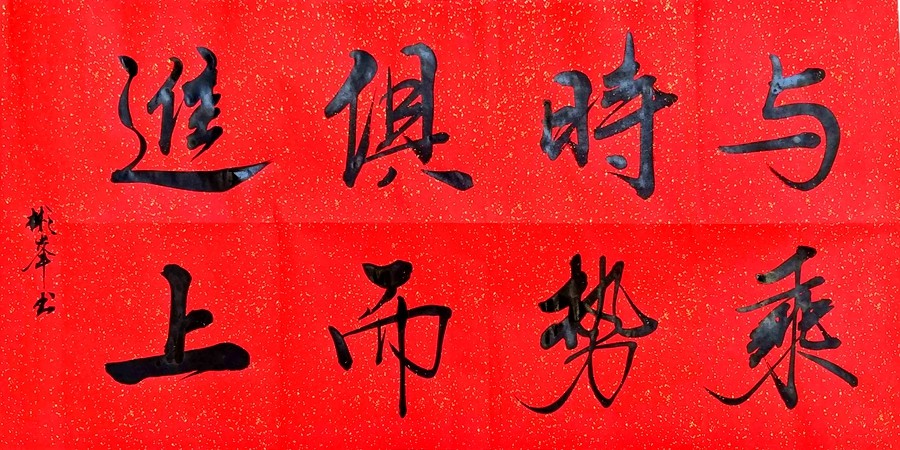 与時俱進
乘勢而上
彬峯书